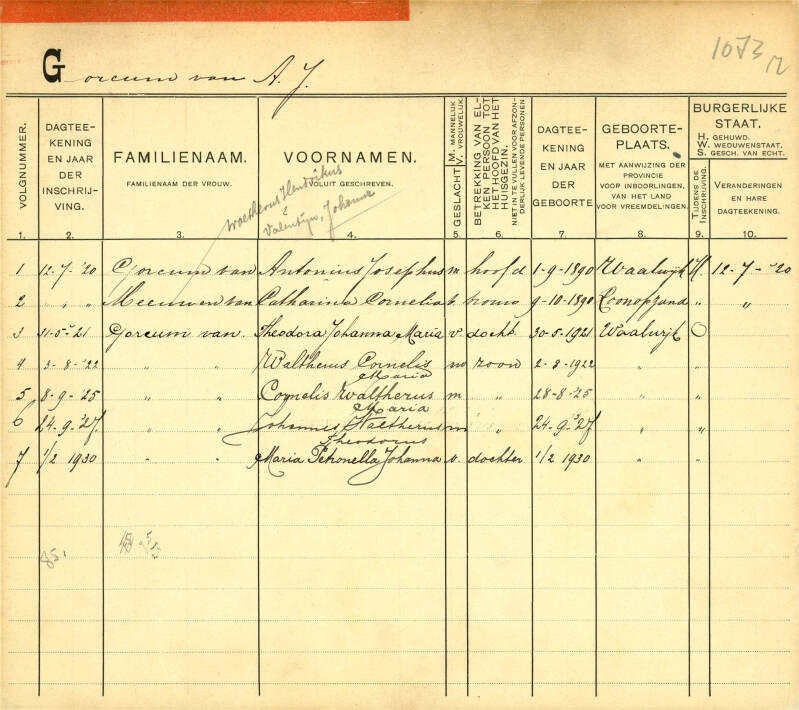 1073/12
Gorcum van A. J.
VOLGNUMMER.
DAGTEE-
KENING
EN JAAR
DER
INSCHRIJ-
VING.
FAMILIENAAM.
FAMILIENAAM DER VROUW.
VOORNAMEN.
VOLUIT GESCHREVEN.
Waltherus Hendrikus
Valentijn, Johanna
GESLACHT M. MANNELIJK
V. VROUWELIJK.
BETREKKING VAN EL-
KEN PERSOON TOT
HET HOOFD VAN HET
HUISGEZIN.
NIET IN TE VULLEN VOOR AFZON-
DERLIJK LEVENDE PERSONEN
DAGTEE-
KENING
EN JAAR
DER
GEBOORTE
GEBOORTE-
PLAATS.
MET AANWIJZING DER
PROVINCIE
VOOR INBOORLINGEN,
VAN HET LAND
VOOR VREEMDELINGEN.
BURGERLIJKE
STAAT.
H. GEHUWD.
W. WEDUWENSTAAT.
S. GESCH. VAN ECHT.
TIJDENS DE
INSCHRIJVING.
VERANDERINGEN
EN HARE
DAGTEEKENING.
1. 2. 3. 4. 5. 6. 7. 8. 9. 10.
1 12-7-'20 Gorcum van Antonius Josephus m hoofd 1-9-1890 Waalwijk H. 12-7-'20
2 " " " Meeuwen van Catharina Cornelia v. vrouw 9-10-1890 Loonopzand " "
3 31-5-'21 Gorcum van. Theodora Johanna Maria v. docht. 30-5-1921 Waalwijk O
4 3-8-'22 " " Waltherus Cornelis m zoon 2-8-1922 " "
Maria
5 8-9-'25 " " Cornelis Waltherus m " 28-8-'25 " "
Maria
6 24-9-'27 " " Johannes Waltherus m " 24-9-'27 " "
Theodorus
7 1/2 1930 " " Maria Petronella Johanna v. dochter 1/2 1930 " "
85.